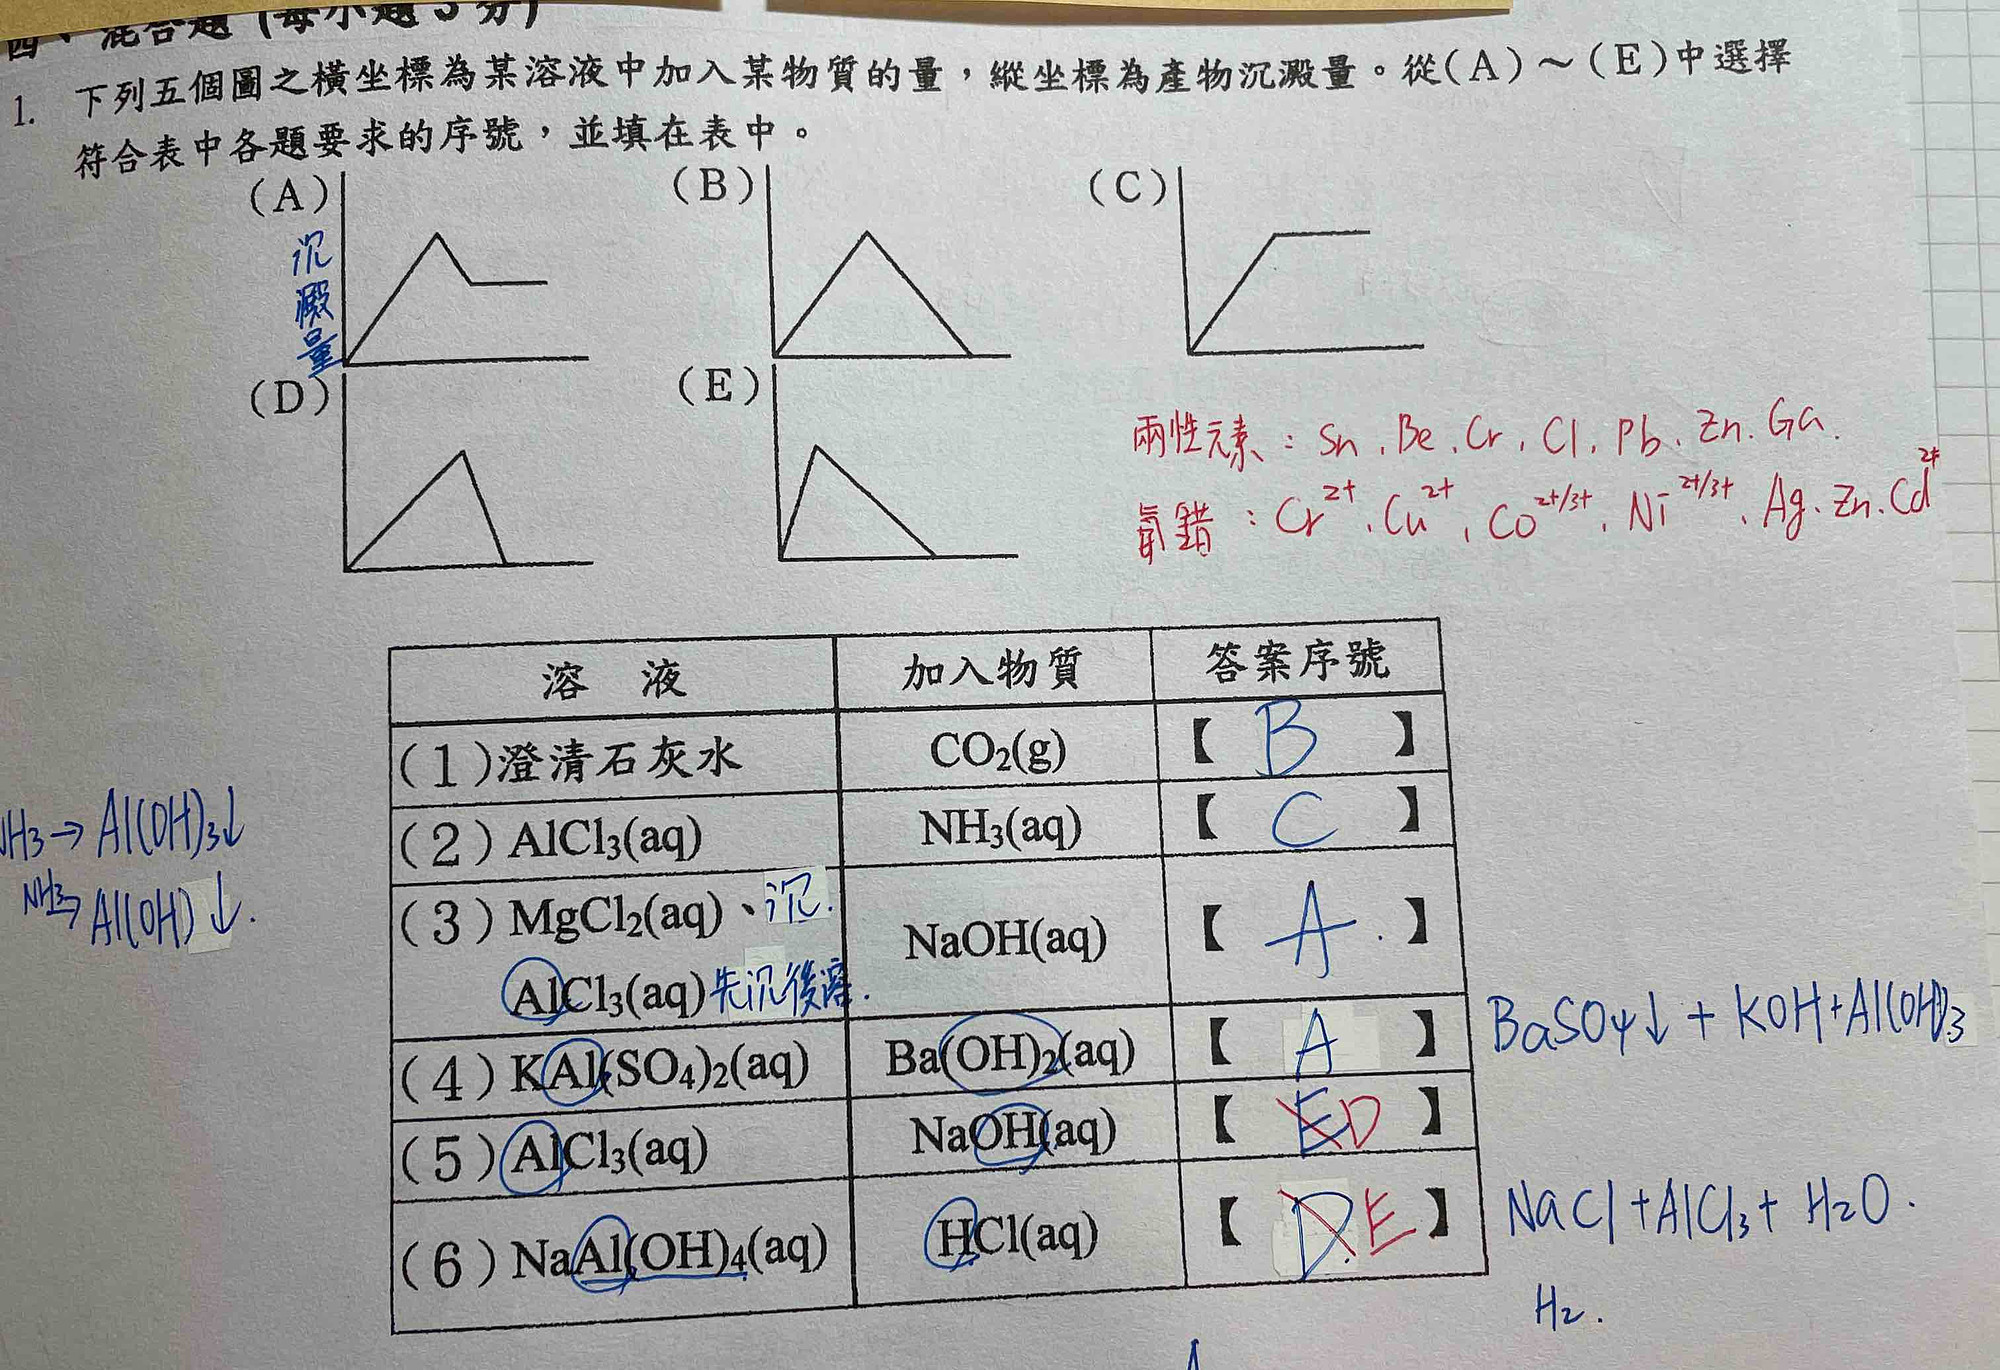 四、混合題(每小題3分)
1. 下列五個圖之橫坐標為某溶液中加入某物質的量，縱坐標為產物沉澱量。從(A)～(E)中選擇
符合表中各題要求的序號，並填在表中。
(A) (B) (C)
沉澱量
(D) (E)
兩性元素：Sn、Be、Cr、Cl、Pb、Zn、Ga.
氨錯：Cr²⁺、Cu²⁺、Co²⁺/³⁺、Ni²⁺/³⁺、Ag、Zn、Cd²⁺
溶 液 加入物質 答案序號
(1)澄清石灰水 CO₂(g) 【 B 】
(2)AlCl₃(aq) NH₃(aq) 【 C 】
NH₃→Al(OH)₃↓
NH₃→Al(OH)↓.
(3)MgCl₂(aq)、沉. NaOH(aq) 【 A . 】
AlCl₃(aq)先沉後溶.
(4)KAl(SO₄)₂(aq) Ba(OH)₂(aq) 【 A 】 BaSO₄↓+KOH+Al(OH)₃
(5)AlCl₃(aq) NaOH(aq) 【 E D 】
(6)NaAl(OH)₄(aq) HCl(aq) 【 D. E 】 NaCl+AlCl₃+H₂O.
H₂.